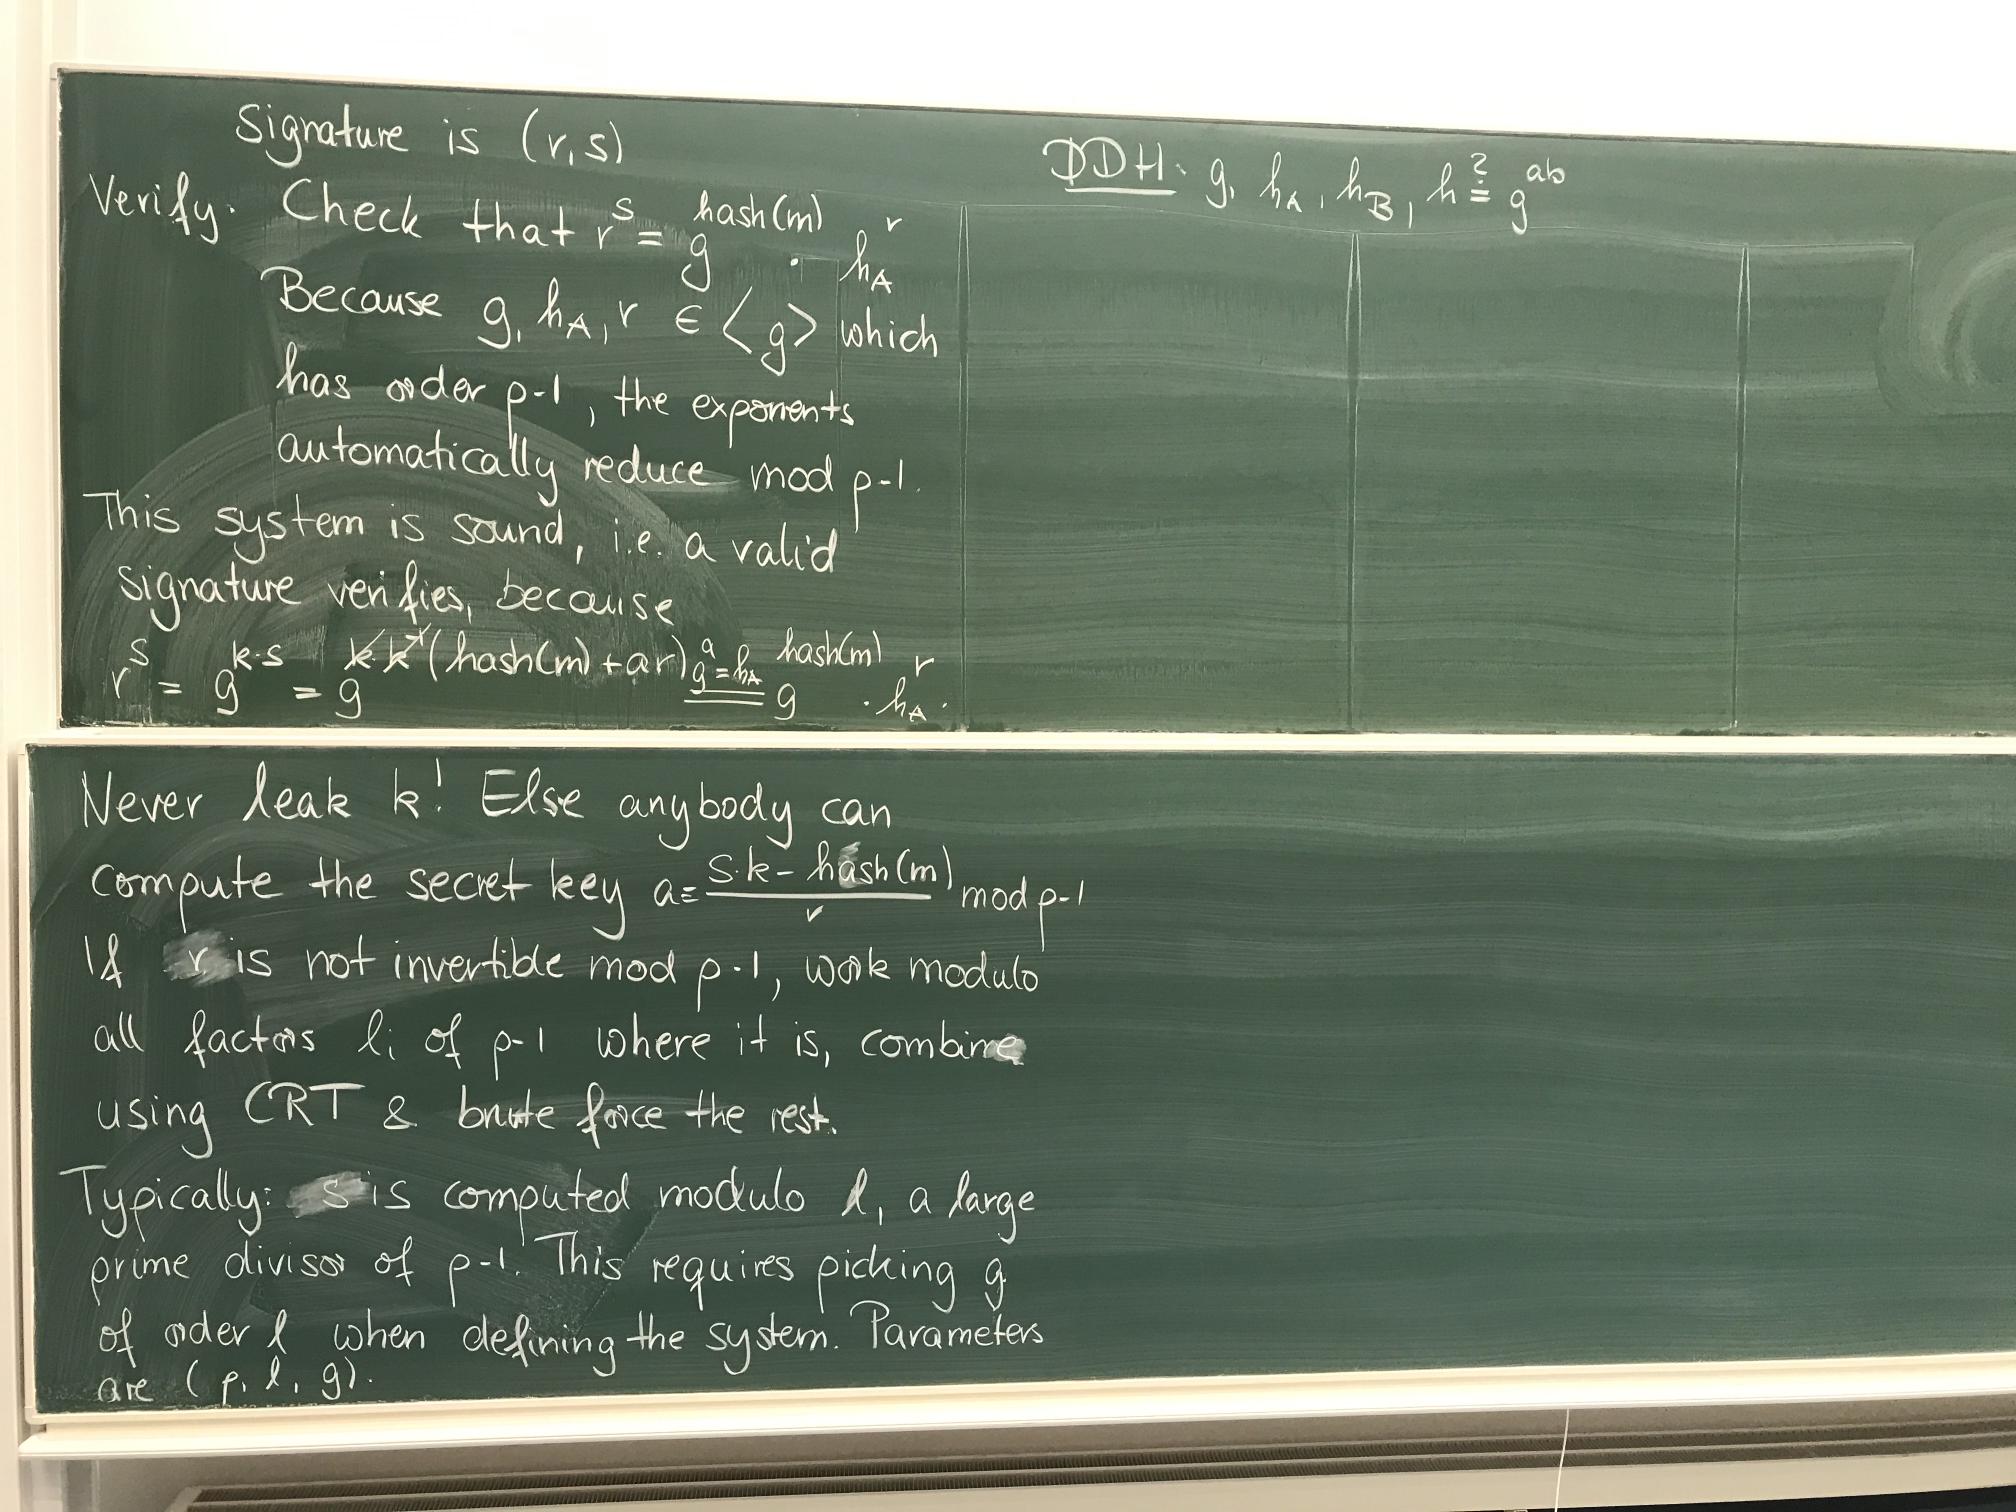 Signature is (r,s)
Verify. Check that r^s = g^hash(m) · h_A^r
Because g, h_A, r ∈ <g> which
has order p-1, the exponents
automatically reduce mod p-1.
This system is sound, i.e. a valid
signature verifies, because
r^s = g^(k·s) = g^(k·k^-1(hash(m)+ar)) g^a=h_A = g^hash(m) · h_A^r.
DDH: g, h_A, h_B, h ?= g^ab
Never leak k! Else anybody can
compute the secret key a≡ (s·k - hash(m))/r mod p-1
If r is not invertible mod p-1, work modulo
all factors l_i of p-1 where it is, combine
using CRT & brute force the rest.
Typically: s is computed modulo l, a large
prime divisor of p-1. This requires picking g
of order l when defining the system. Parameters
are (p, l, g).